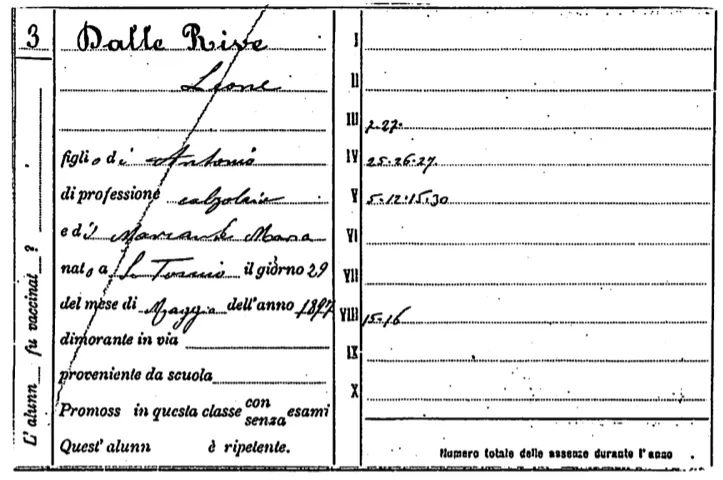 3 Dalle Rive
Leone
figlio di Antonio
di professione calzolaio
e di Marcante Maria
nato a S. Tomio il giorno 29
del mese di Maggio dell'anno 1897
dimorante in via
proveniente da scuola
Promoss in questa classe con senza esami
Quest' alunn è ripetente.
L' alunn fu vaccinat ?
I
II
III 2-27-
IV 25-26-27
V 5-12-15-30
VI
VII
VIII 15-16
IX
X
Numero totale delle assenze durante l'anno